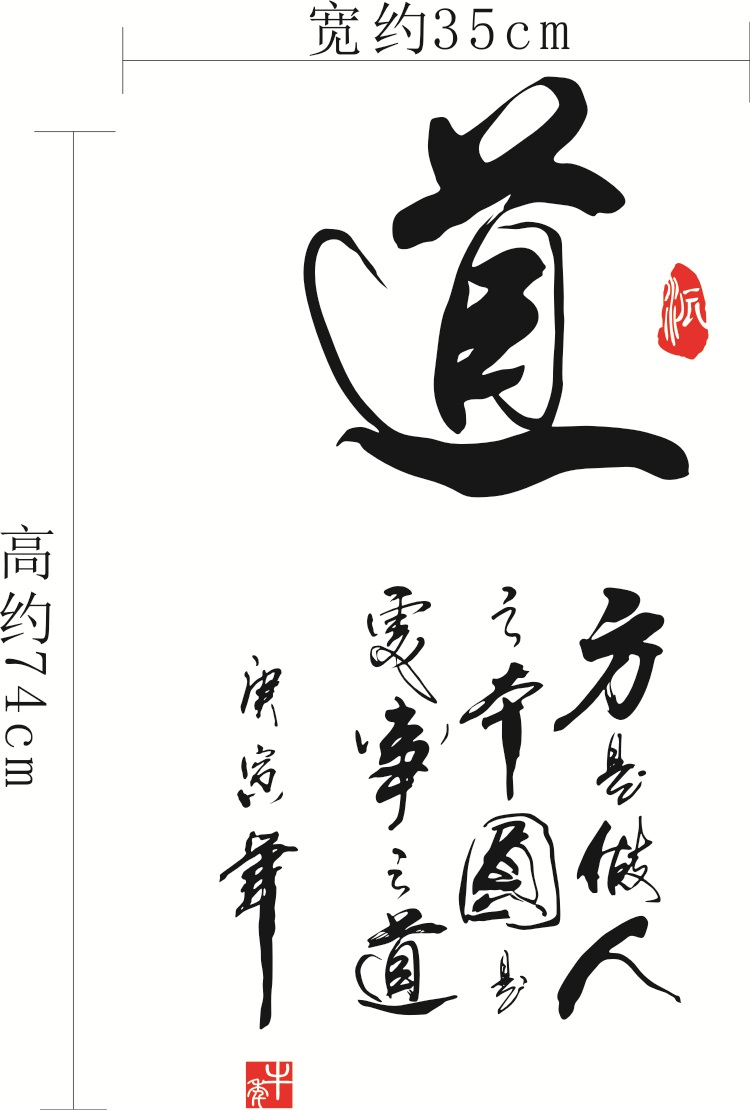 宽约35cm
高约74cm
道
方是做人
之本圆是
处事之道
庚寅年